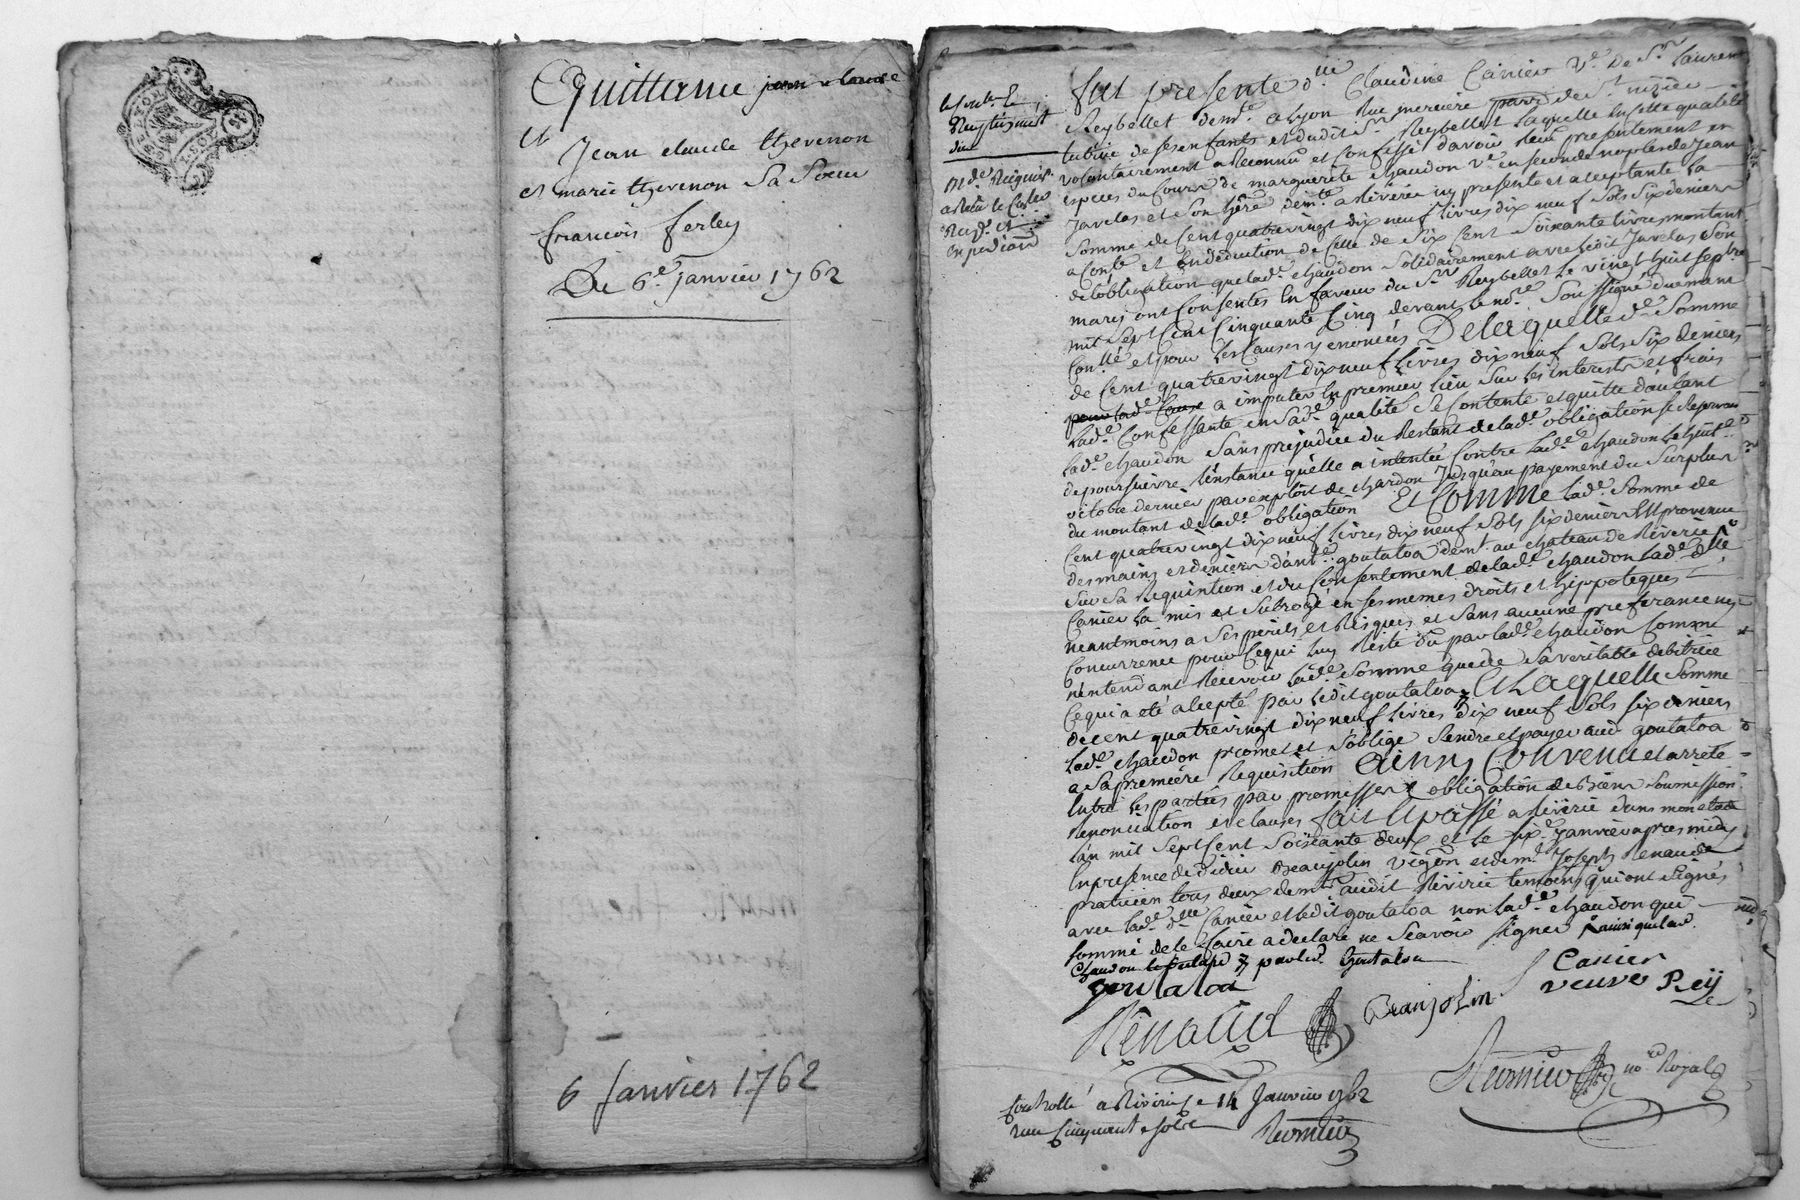 Quittance jean claude
et
Jean claude thevenon
et marie thevenon Sa Soeur
francois ferley
Du 6.e Janvier 1762
6 Janvier 1762
fut presente d.lle Claudine Canier V.e De S.r Laurent
Reybellet dem.te a Lyon Rue merciere parr.e de S.t nizier
tutrice de ses enfants et dudit S.r Reybellet laquelle En cette qualité
volontairement a Reconnu et Confessé d'avoir Reçu presentement en
especes du Cours de marguerite chaudon V.e en seconde noples de Jean
Javelas et Son her.e dem.te a Riverie icy presente et acceptante La
Somme de Cent quatrevingt dix neuf livres dix neuf Sols Six deniers
a Conte et En deduction de Celle de Six Cent Soixante livres montant
de l'obligation que lad.e chaudon Solidairement avec ledit Javelas Son
mary ont Consentës En faveur du S.r Reybellet Le vingt huit septbre
mil Sept Cent Cinquante Cinq devant Le no.re Soussigné duement
Con.llé et pour Les Causes y enoncées De laquelle d.e Somme
de Cent quatrevingt dix neuf Livres dix neuf Sols Six deniers
a imputer En premier lieu Sur Les interests et frais
lad.e Confessante en Sad.e qualité Se Contente et quitte d'autant
lad.e chaudon Sans prejudice du Restant de lad.e obligation Se Reservant
de poursuivre l'instance qu'elle a intentée Contre lad.e chaudon Le huit
octobre dernier par exploit de chardon Jusqu'au payement du Surplus
du montant de lad.e obligation Et Comme lad.e Somme de
Cent quatrevingt dix neuf Livres dix neuf Sols Six deniers Est provenue
des mains et deniers d'ant.e goutaloa dem.t au chateau de Riverie
Sur Sa Requisition et du Consentement de lad.e chaudon lad.e d.lle
Canier La mis et Subrogé en Ses mêmes droits et hippoteques
neantmoins a Ses perils et Risques et Sans aucune preferance ny
Concurrence pour Ce qui luy Reste Du par lad.e chaudon Comme
n'entendant Recevoir lad.e Somme que de Sa veritable debitrice
Ce qui a eté accepté par ledit goutaloa Et Laquelle Somme
de Cent quatrevingt dix neuf Livres dix neuf Sols Six deniers
lad.e chaudon promet et S'oblige Rendre et payer aud. goutaloa
a Sa premiere Requisition Ainsy Convenu et arreté
Entre Les parties par promesses obligation de Biens Soumissions
Renonciation et clauses fait Et passé a Riverie dans mon etude
L'an mil Sept Cent Soixante deux et Le Six Janvier apres midy
En presence de Didier Beaujolin vigneron et de m.e Joseph Renaud
praticien tous deux dem.ts audit Riverie temoins qui ont Signés
avec lad.e d.lle Canier et ledit goutaloa non lad.e chaudon qui
Sommé de le faire a declaré ne Sçavoir Signer
goutaloa
Canier
veuve Rey
Beaujolin
Renaud
no.re Royal
Controllé a Riverie Le 14 Janvier 1762